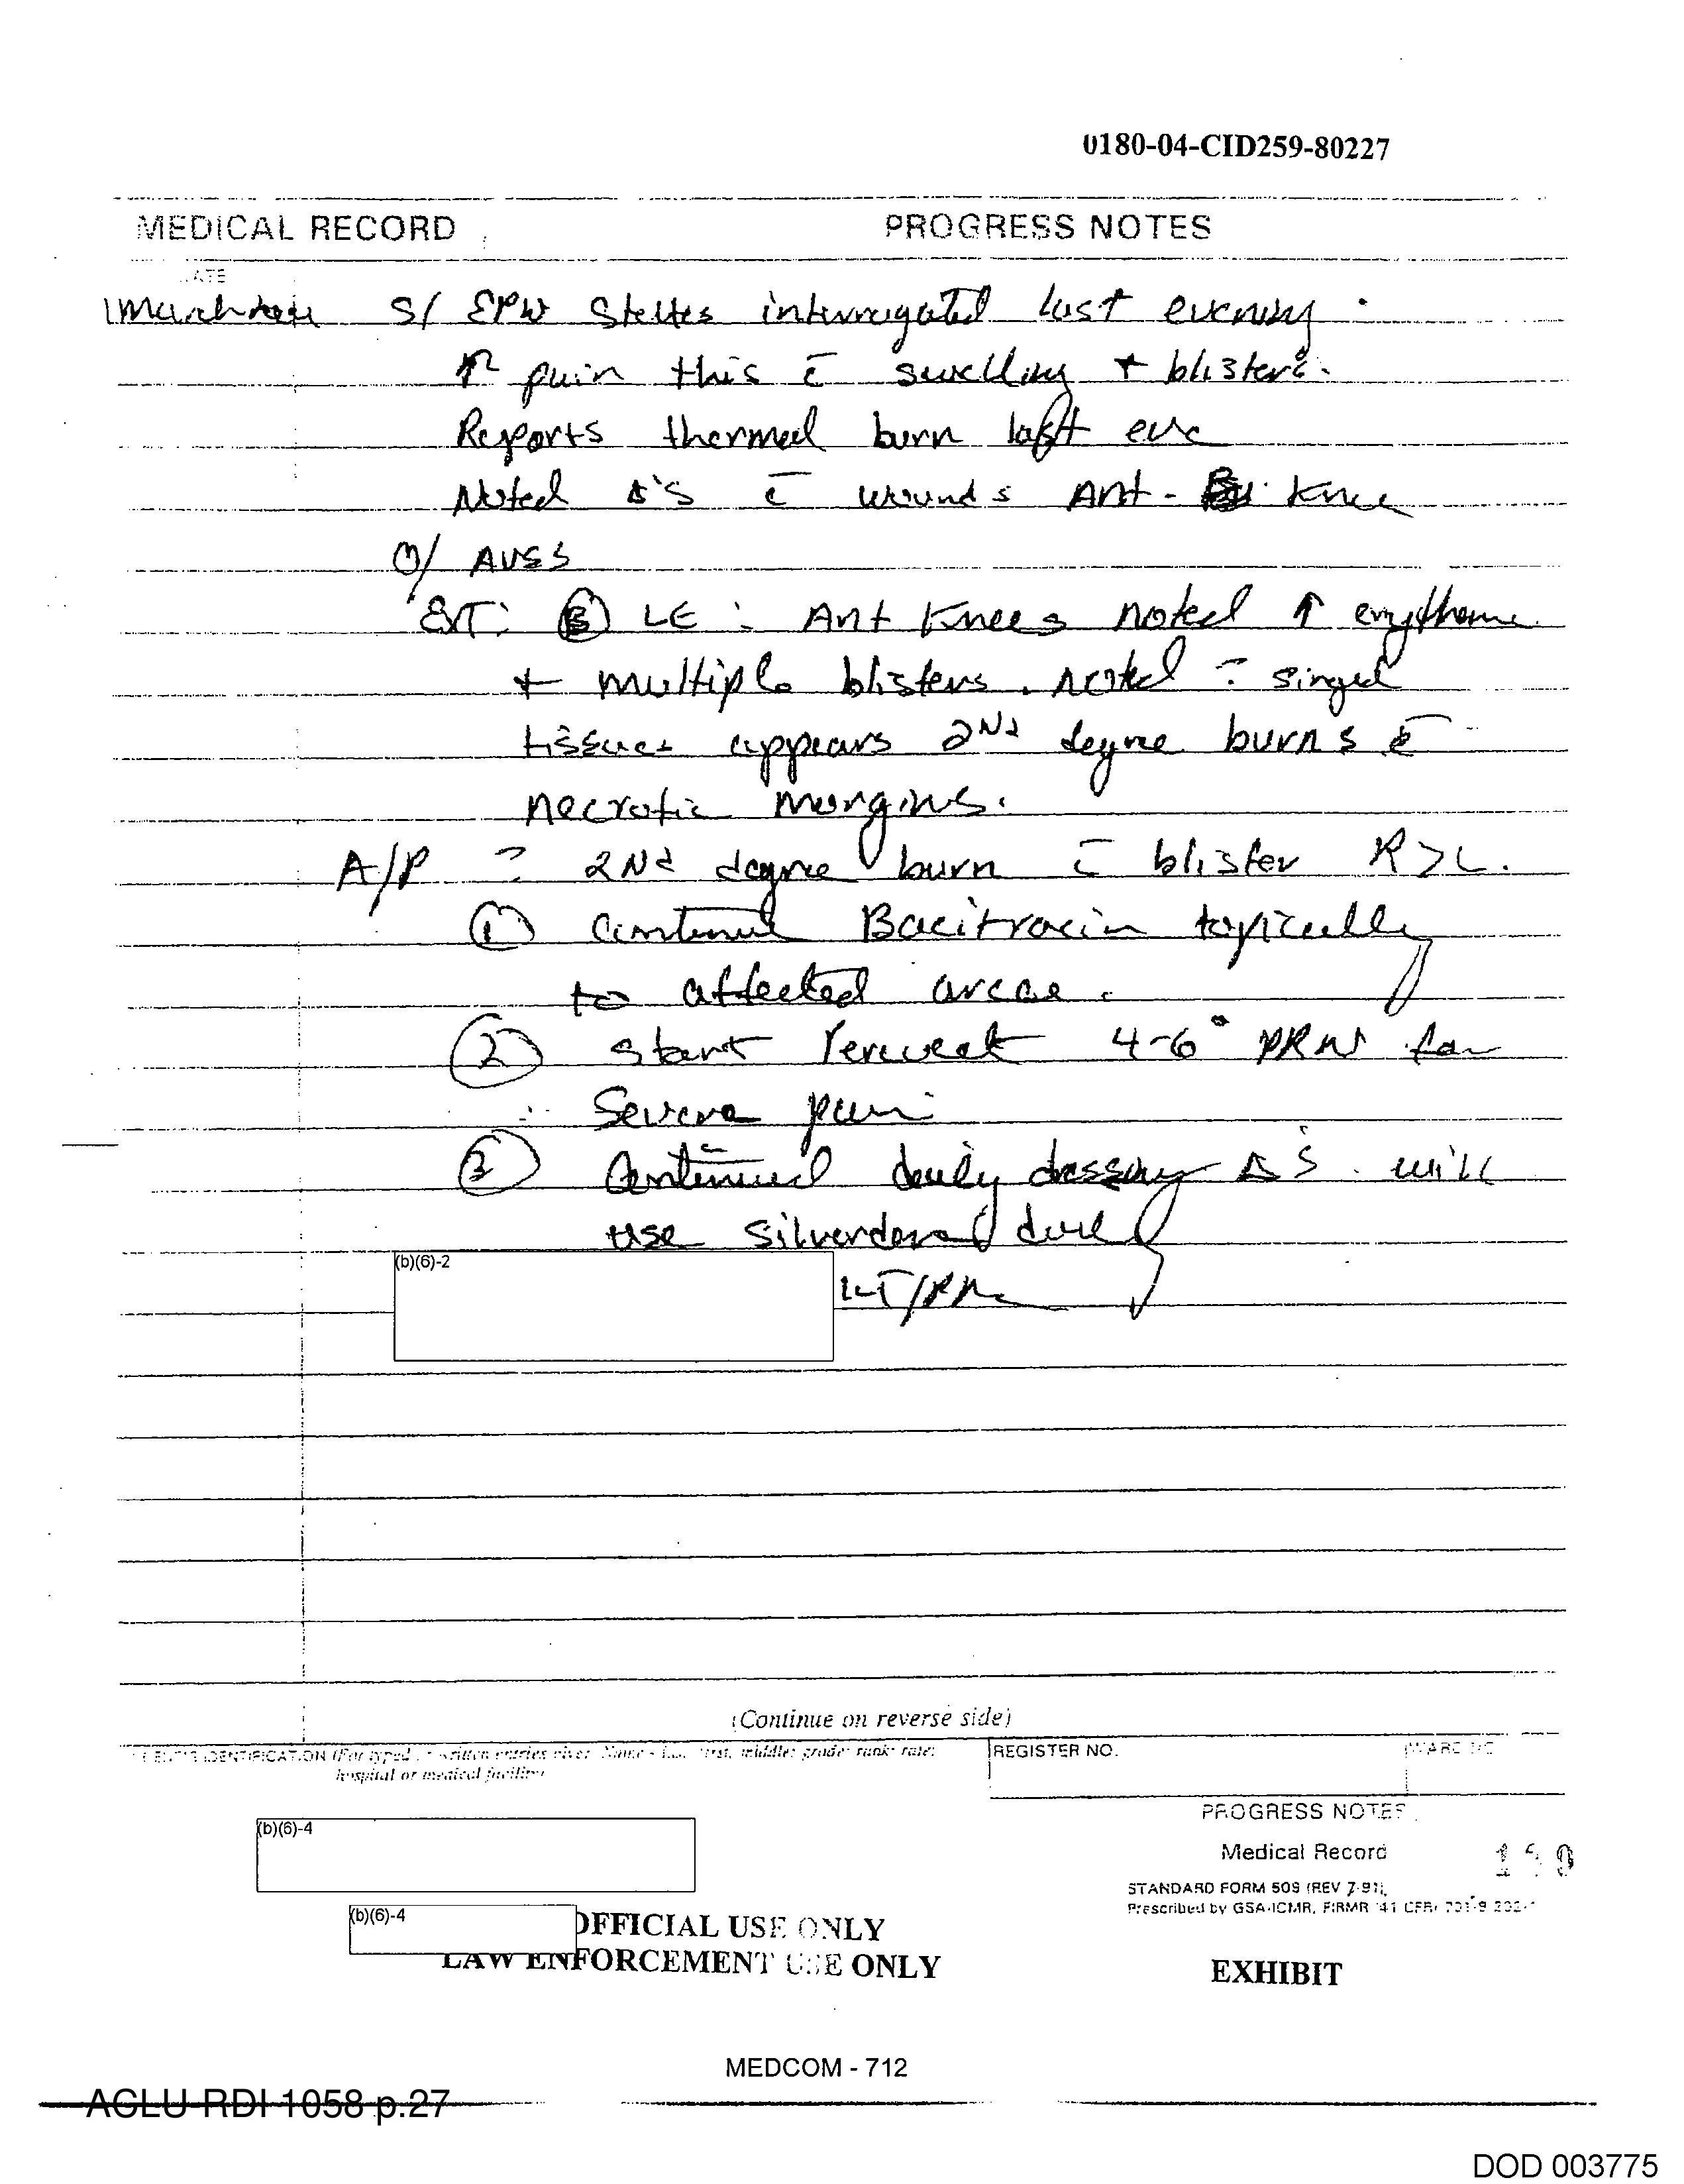 0180-04-CID259-80227
MEDICAL RECORD PROGRESS NOTES
S/ EPW States interrogated last evening.
↑ pain this c̄ swelling + blisters.
Reports thermal burn last eve
Noted Δ's c̄ wounds Ant. Knee
O/ AVSS
EXT: Ⓑ LE: Ant Knees noted ↑ erythema
+ multiple blisters. Noted singed
tissues appears 2nd degree burns c̄
necrotic margins.
A/P ? 2nd degree burn c̄ blister R>L.
① Continue Bacitracin topically
to affected areas.
② Start Percocet 4-6° PRN for
Severe pain
③ Continued daily dressing Δ's. will
use silverdene
(b)(6)-2
LT/
(Continue on reverse side)
IDENTIFICATION (For typed or written entries give: Name - last, first, middle; grade; rank; rate;
hospital or medical facility)
REGISTER NO.
WARD NO
(b)(6)-4
PROGRESS NOTES
Medical Record
STANDARD FORM 509 (REV 7-91)
Prescribed by GSA-ICMR, FIRMR (41 CFR)
(b)(6)-4
OFFICIAL USE ONLY
LAW ENFORCEMENT USE ONLY
EXHIBIT
MEDCOM - 712
ACLU-RDI 1058 p.27
DOD 003775